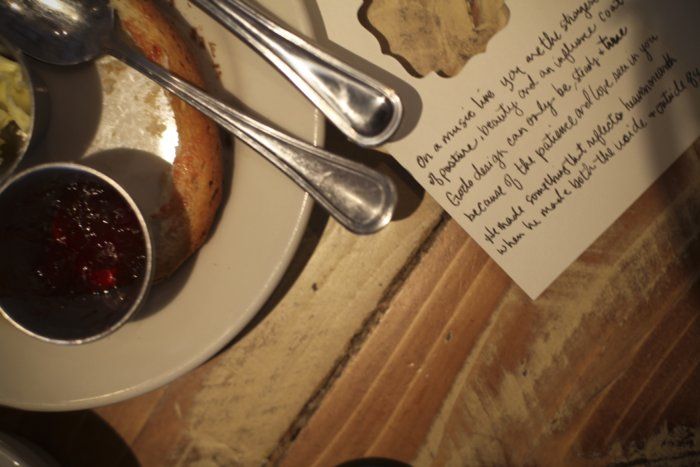 On a music line you are the stronger
of posture, beauty and an influence coat
God's design can only be stately true
because of the patience and love seen in you
He made something that reflects heaven on earth
when he made both the inside & outside of